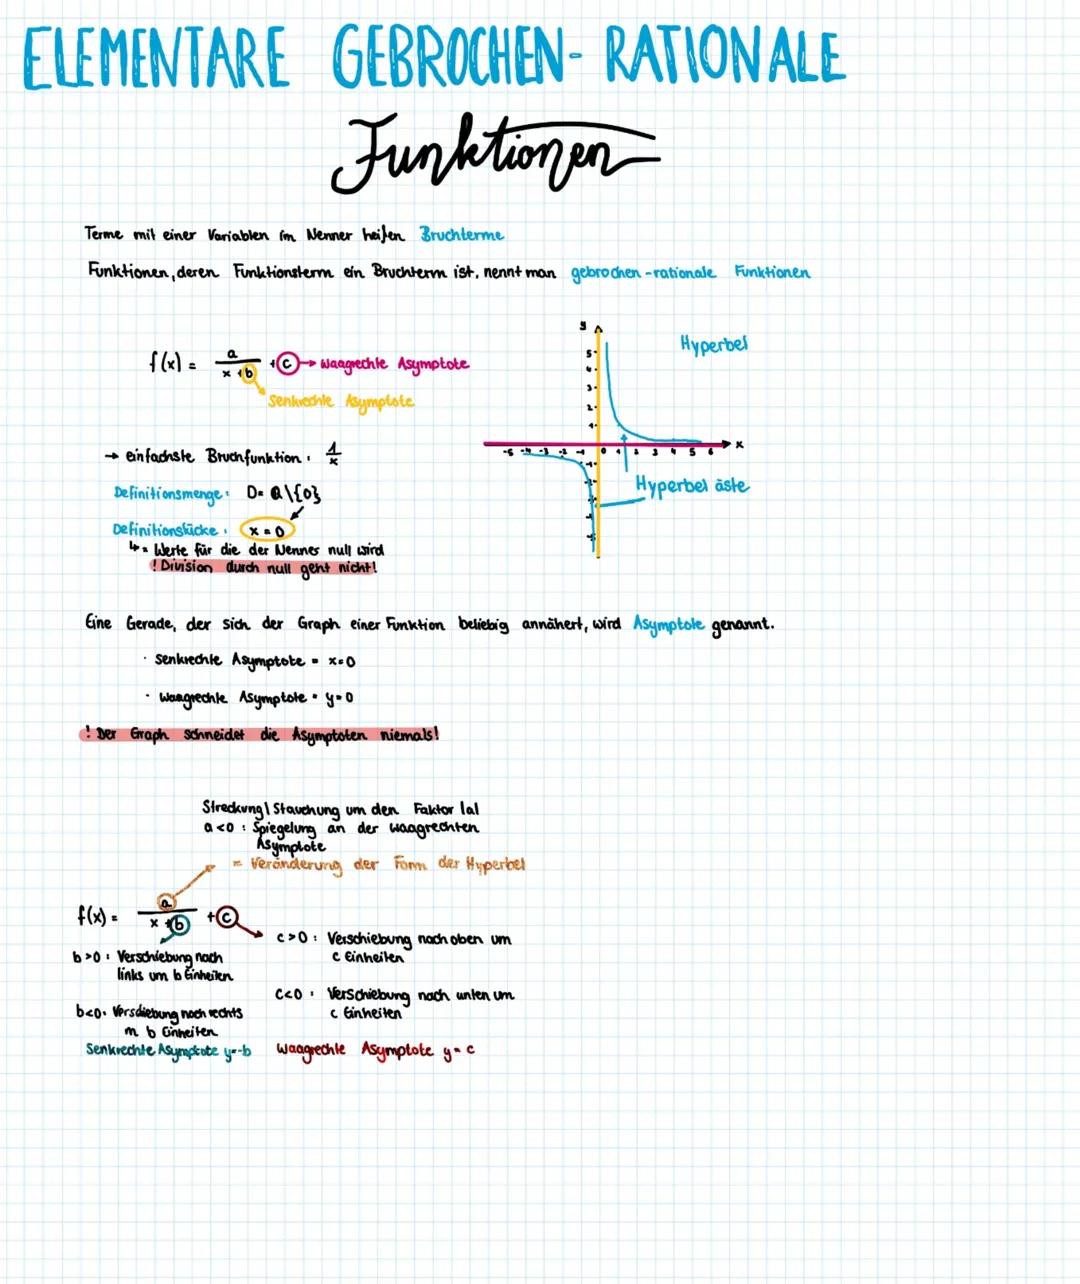 ELEMENTARE GEBROCHEN-RATIONALE
Funktionen
Terme mit einer Variablen im Nenner heißen Bruchterme
Funktionen, deren Funktionsterm ein Bruchterm ist, nennt man gebrochen-rationale Funktionen
y
Hyperbel
f(x) = a/(x+b) + c → waagrechte Asymptote
Senkrechte Asymptote
5
4
3
2
1
-5 -4 -3 -2 -1 0 1 2 3 4 5 6 x
→ einfachste Bruchfunktion: 1/x
Hyperbel äste
Definitionsmenge: D= Q\{0}
Definitionslücke: x = 0
↳ = Werte für die der Nenner null wird
! Division durch null geht nicht!
Eine Gerade, der sich der Graph einer Funktion beliebig annähert, wird Asymptote genannt.
· Senkrechte Asymptote = x=0
· Waagrechte Asymptote = y=0
! Der Graph schneidet die Asymptoten niemals!
Streckung\Stauchung um den Faktor |a|
a<0 : Spiegelung an der waagrechten
Asymptote
= Veränderung der Form der Hyperbel
f(x) = a/(x+b) + c
c>0 : Verschiebung nach oben um
c Einheiten
b>0 : Verschiebung nach
links um b Einheiten
c<0 : Verschiebung nach unten um
c Einheiten
b<0: Verschiebung nach rechts
m b Einheiten
Senkrechte Asymptote y=-b
Waagrechte Asymptote y=c